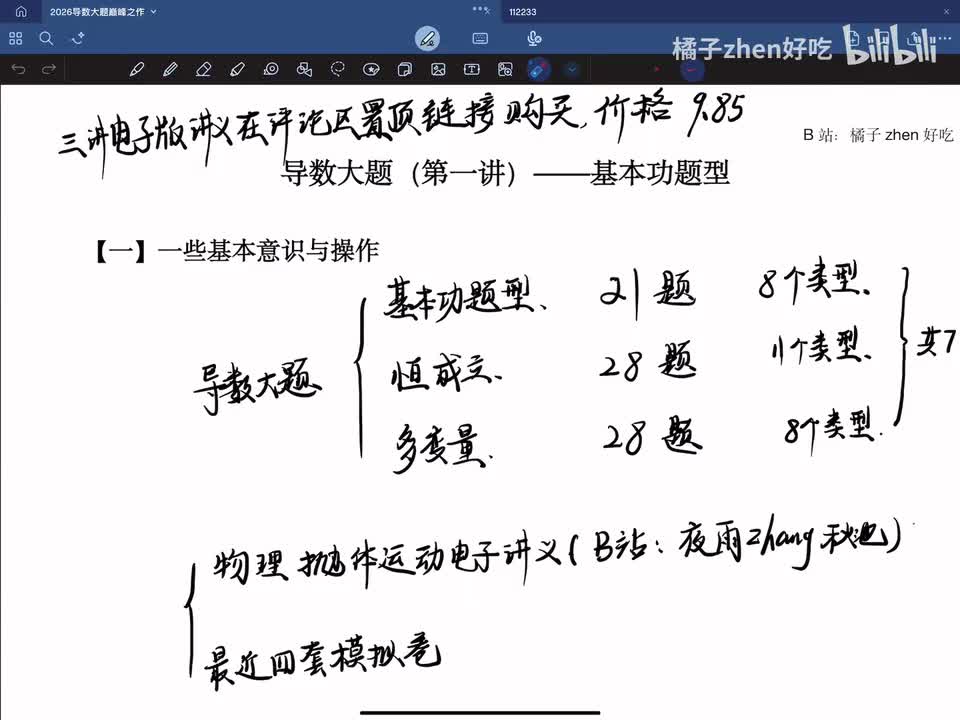 2026导数大题巅峰之作
112233
橘子zhen好吃 bilibili
三讲电子版讲义在评论区置顶链接购买,价格 9.85
B 站：橘子 zhen 好吃
导数大题（第一讲）——基本功题型
【一】一些基本意识与操作
导数大题
基本功题型、 21题 8个类型、
恒成立、 28题 11个类型、
多变量. 28题 8个类型.
共7
物理 抛体运动电子讲义(B站：夜雨zhang秋池)
最近四套模拟卷